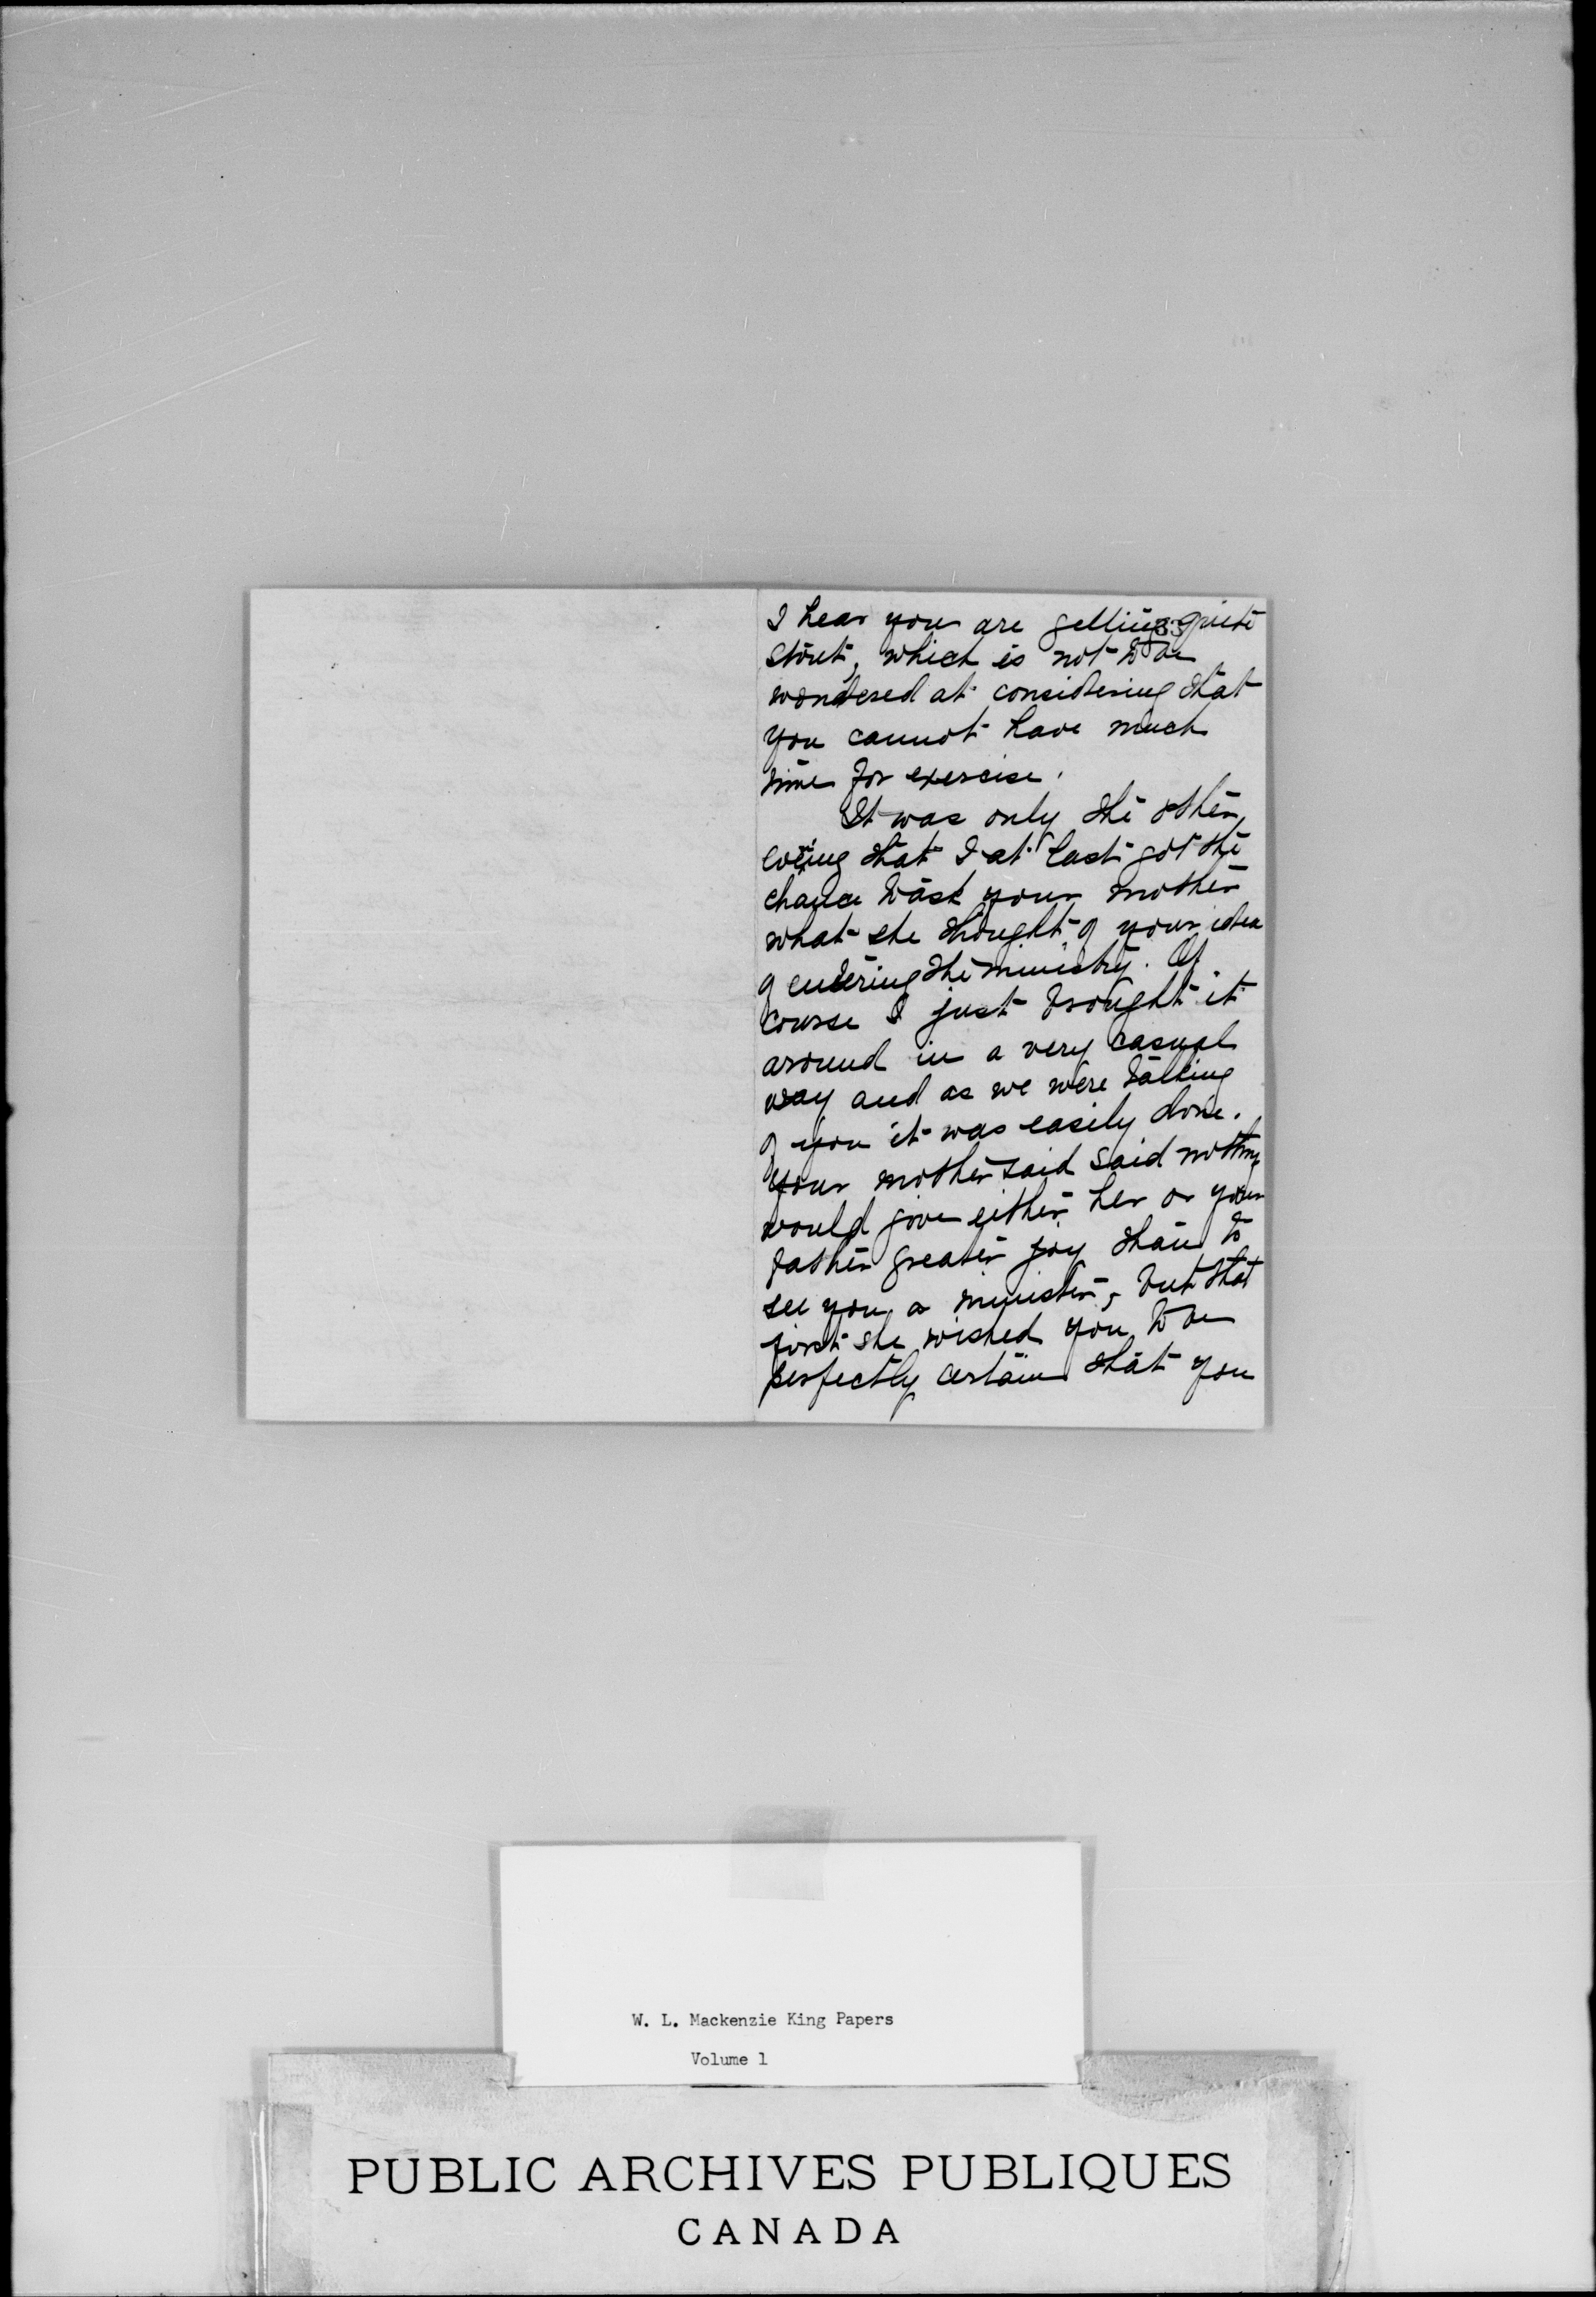 I hear you are getting quite
stout, which is not to be
wondered at considering that
you cannot have much
time for exercise.
It was only the other
eve'ing that I at last got the
chance to ask your mother
what she thought of your idea
of entering the ministry. Of
course I just brought it
around in a very casual
way and as we were talking
of you it was easily done.
Your mother said said nothing
would give either her or your
father greater joy than to
see you a minister, but that
first she wished you to be
perfectly certain that you
W. L. Mackenzie King Papers
Volume 1
PUBLIC ARCHIVES PUBLIQUES
CANADA